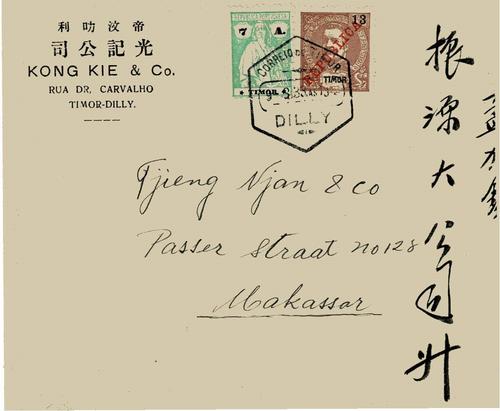 帝汶叻利
光記公司
KONG KIE & Co.
RUA DR. CARVALHO
TIMOR-DILLY.
7 A.
TIMOR
13
REPUBLICA
TIMOR
CORREIO DE TIMOR
DILLY
Tjieng Njan & co
Passer Straat no 128
Makassar
振源大公司升